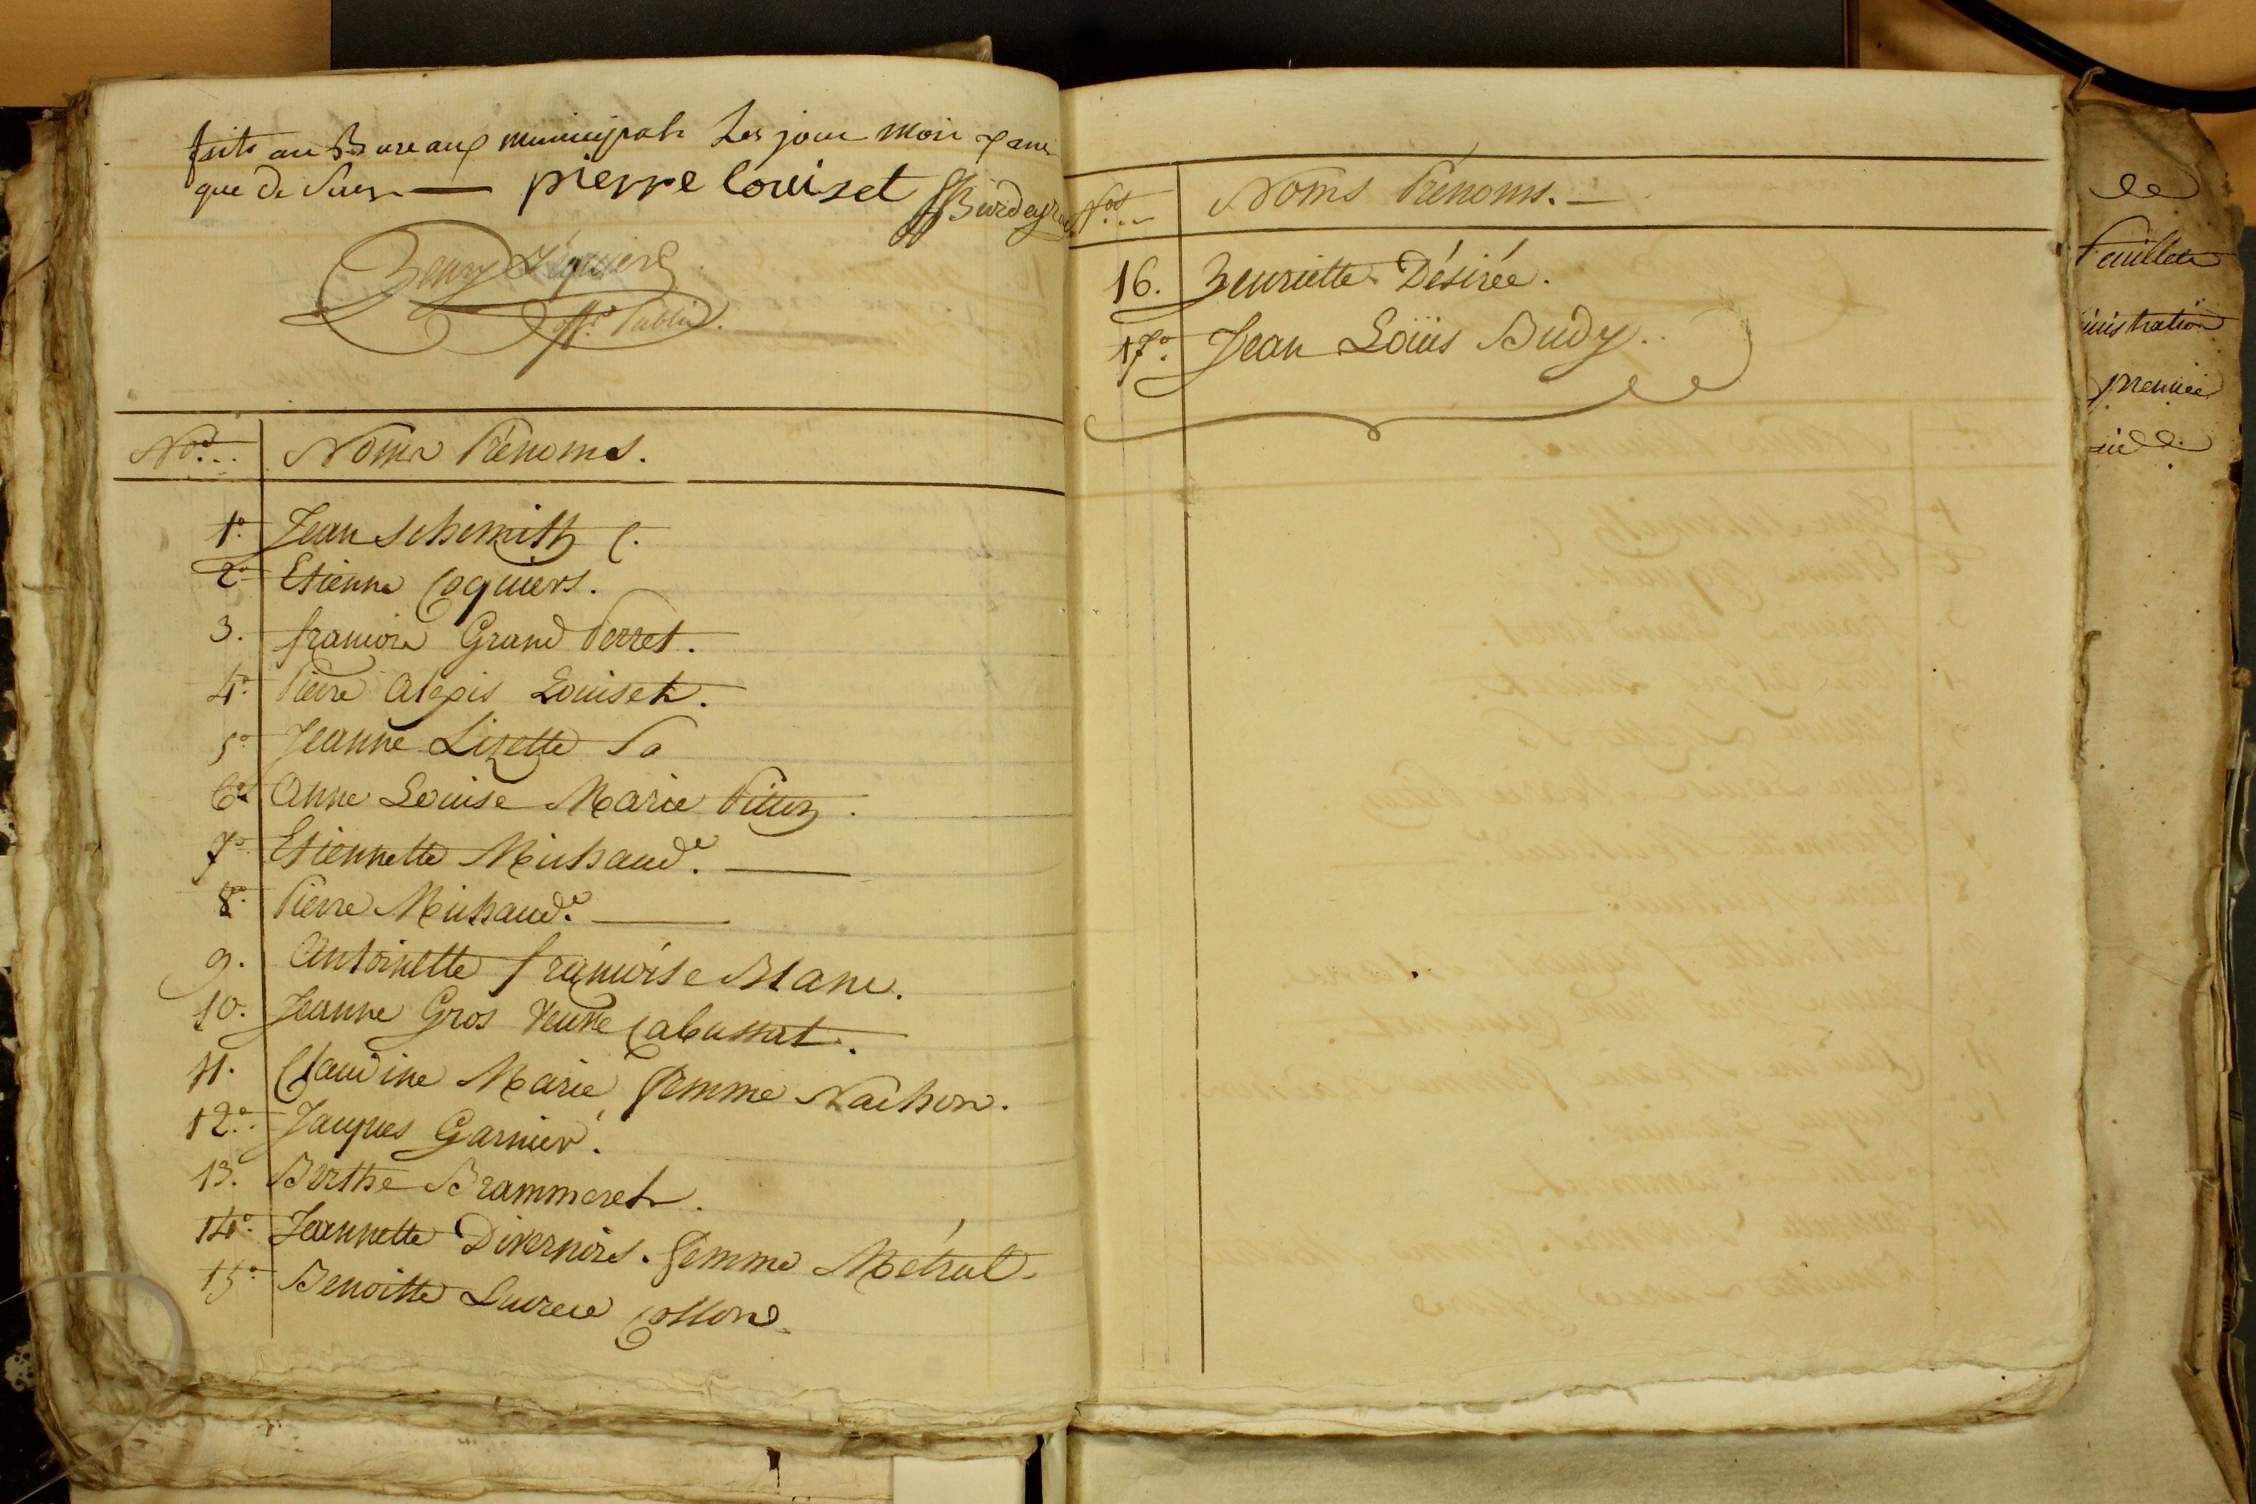 faits au Bureaux municipals Les jour Mois & ans
que de sus — pierre louiset Burdeyron
henry
off.r Public.
Nos... Noms Prénoms.
1o. Jean schemith C.
2o Etienne Coquiers.
3. francois Grand Perret.
4o. Pierre Alexis Louiset.
5o Jeanne Lizette So
6o Anne Louise Marie Pitton.
7o Etiennette Michaude. —
8o. Pierre Michaude. —
9. Antoinette françoise Blanc.
10. Jeanne Gros Veuve Cabussat.
11. Claudine Marie femme Nachon.
12o. Jacques Garnier.
13. Berthe Brammeret.
14o. Jeannette Divernois. femme Métral.
15o Benoitte Lucrece Collon.
Nos... Noms Prénoms. —
16. henriette Désirée.
17o. Jean Loüis Budy..
feuillets
inistration
premier